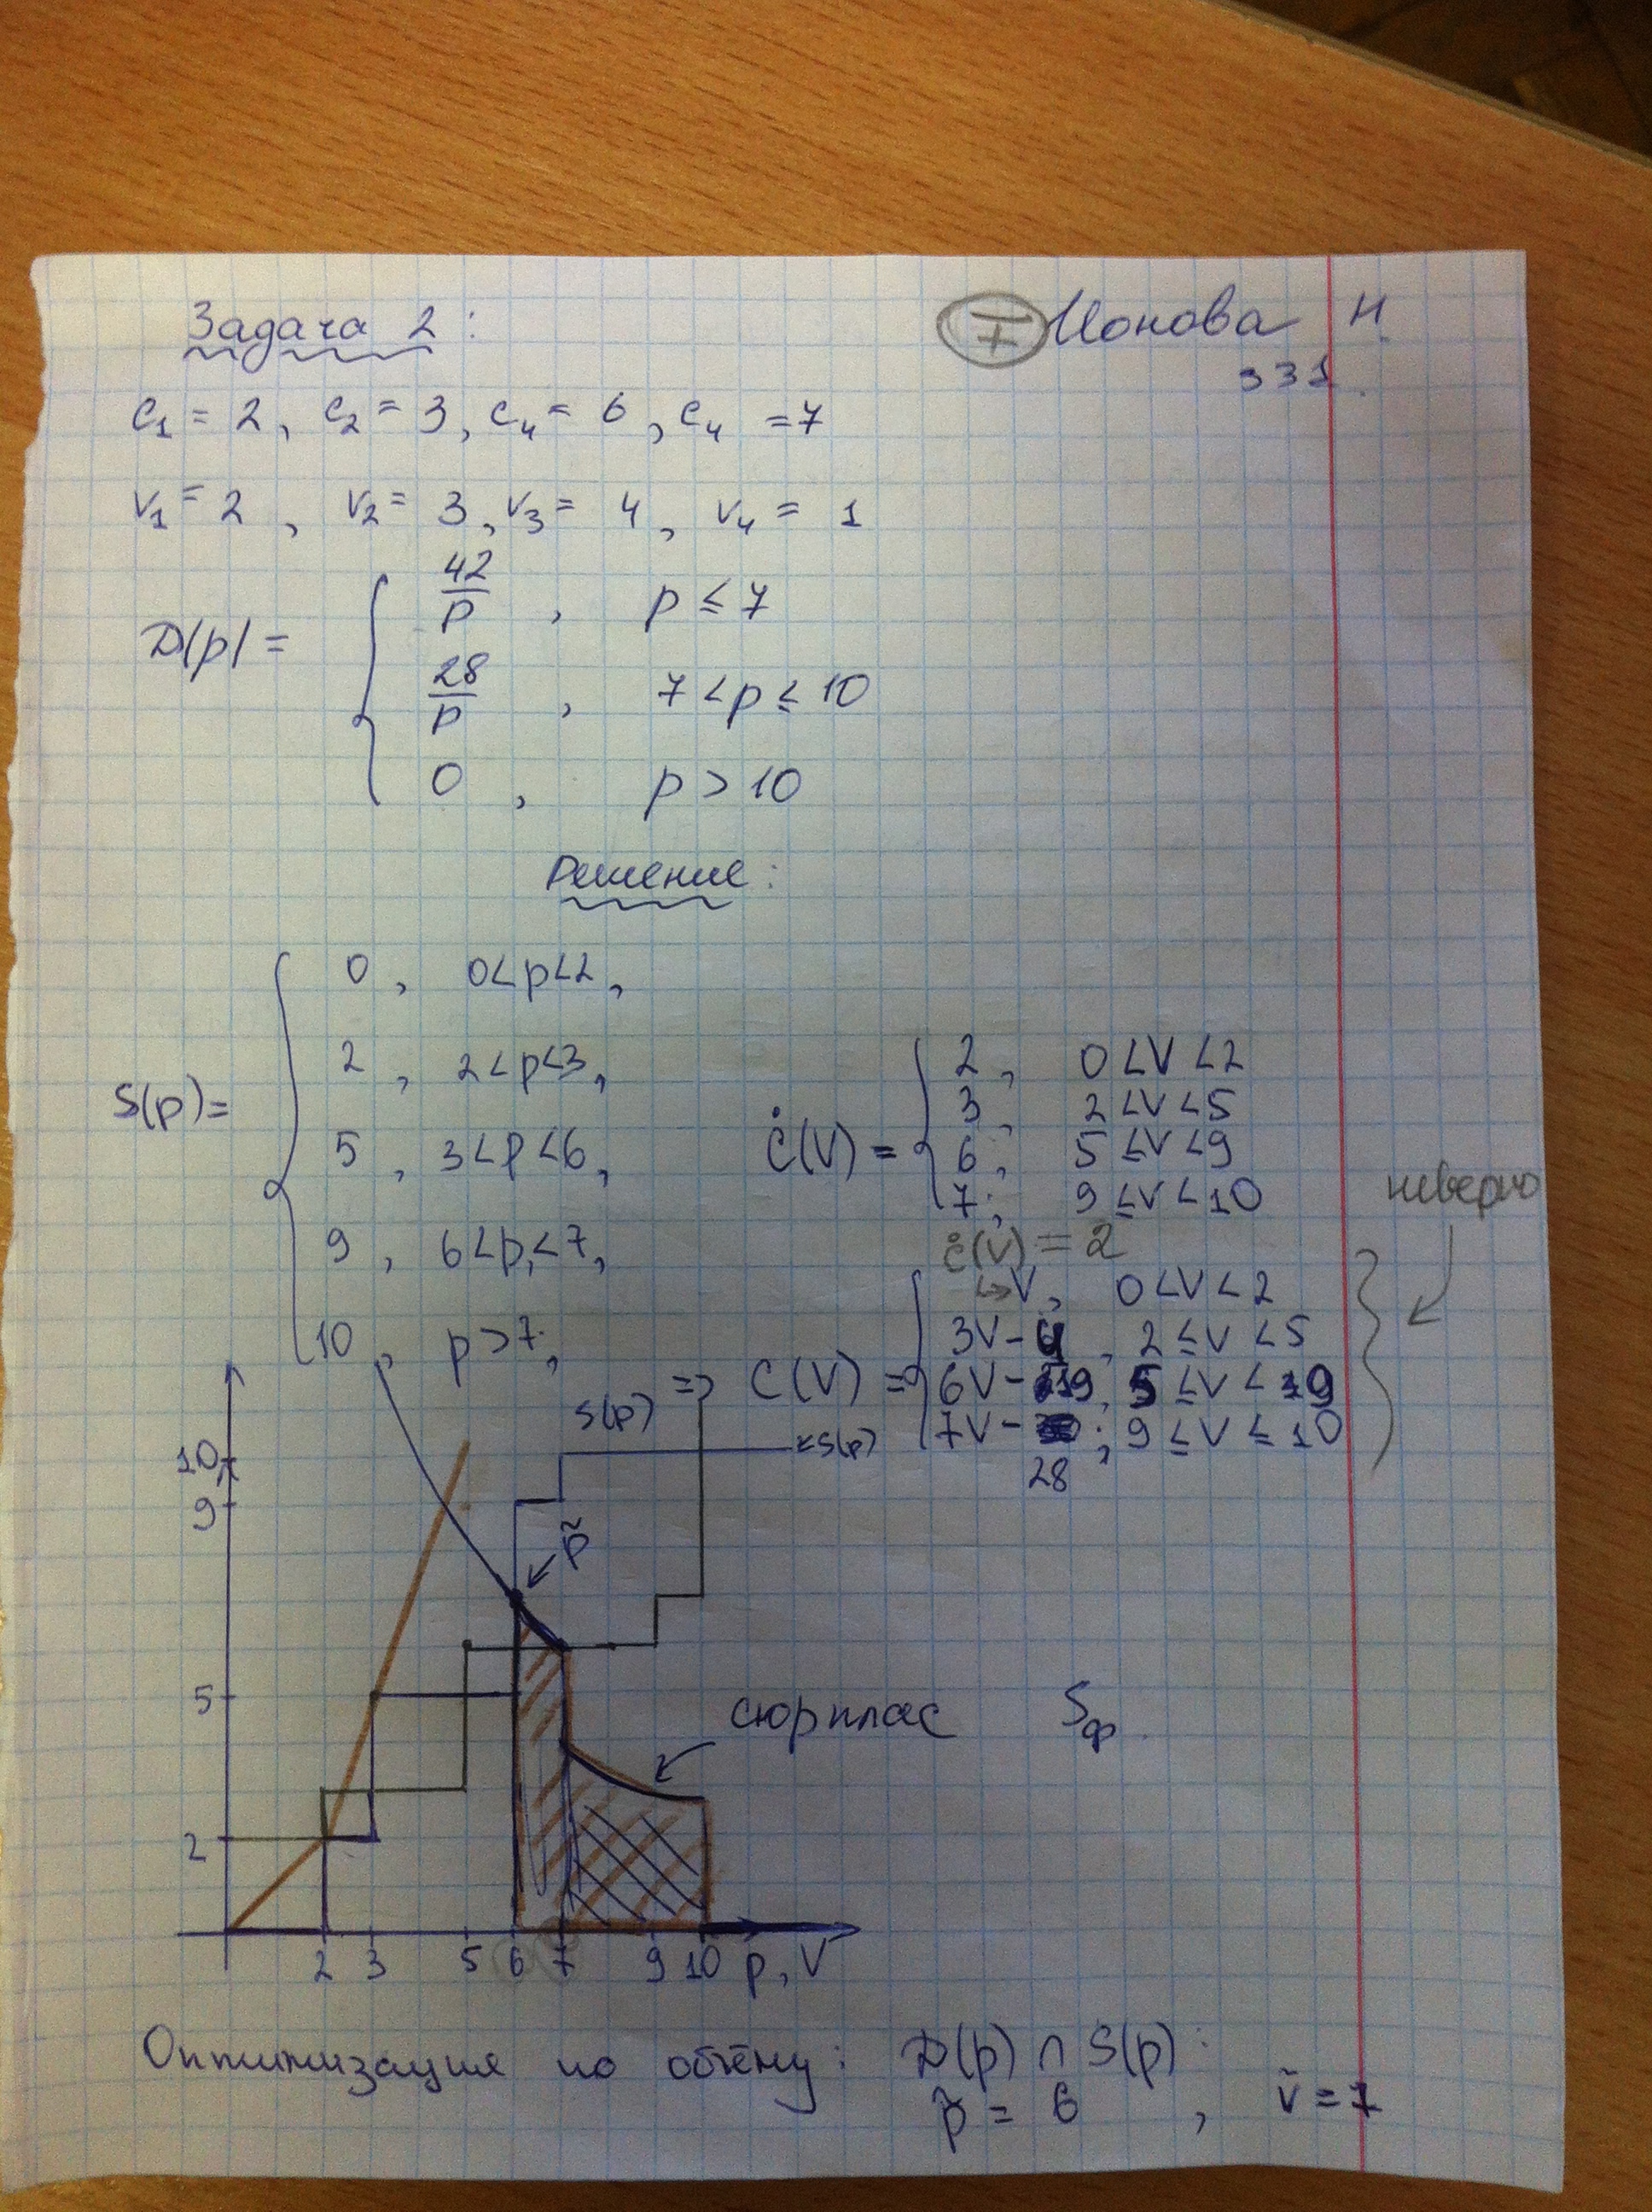 Задача 2:
I Ионова Н.
331
c₁ = 2, c₂ = 3, c₄ = 6, c₄ = 7
v₁ = 2, v₂ = 3, v₃ = 4, v₄ = 1
D(p) = { 42/p, p ≤ 7
28/p, 7 < p ≤ 10
0, p > 10
Решение:
S(p) = { 0, 0<p<2,
2, 2<p<3,
5, 3<p<6,
9, 6<p<7,
10, p>7,
ċ(V) = { 2, 0<V<2
3, 2≤V<5
6, 5≤V<9
7; 9≤V<10
ċ(V) = 2
=> C(V) = { V, 0<V<2
3V-4, 2≤V<5
6V-19, 5≤V<9
7V-28; 9≤V≤10
неверно
S(p)
S(p)
10
9
p̃
5
сюрплас Sф.
2
2 3 5 6 7 9 10 p, V
Оптимизация по объёму: D(p) ∩ S(p):
p̃ = 6, ṽ = 7